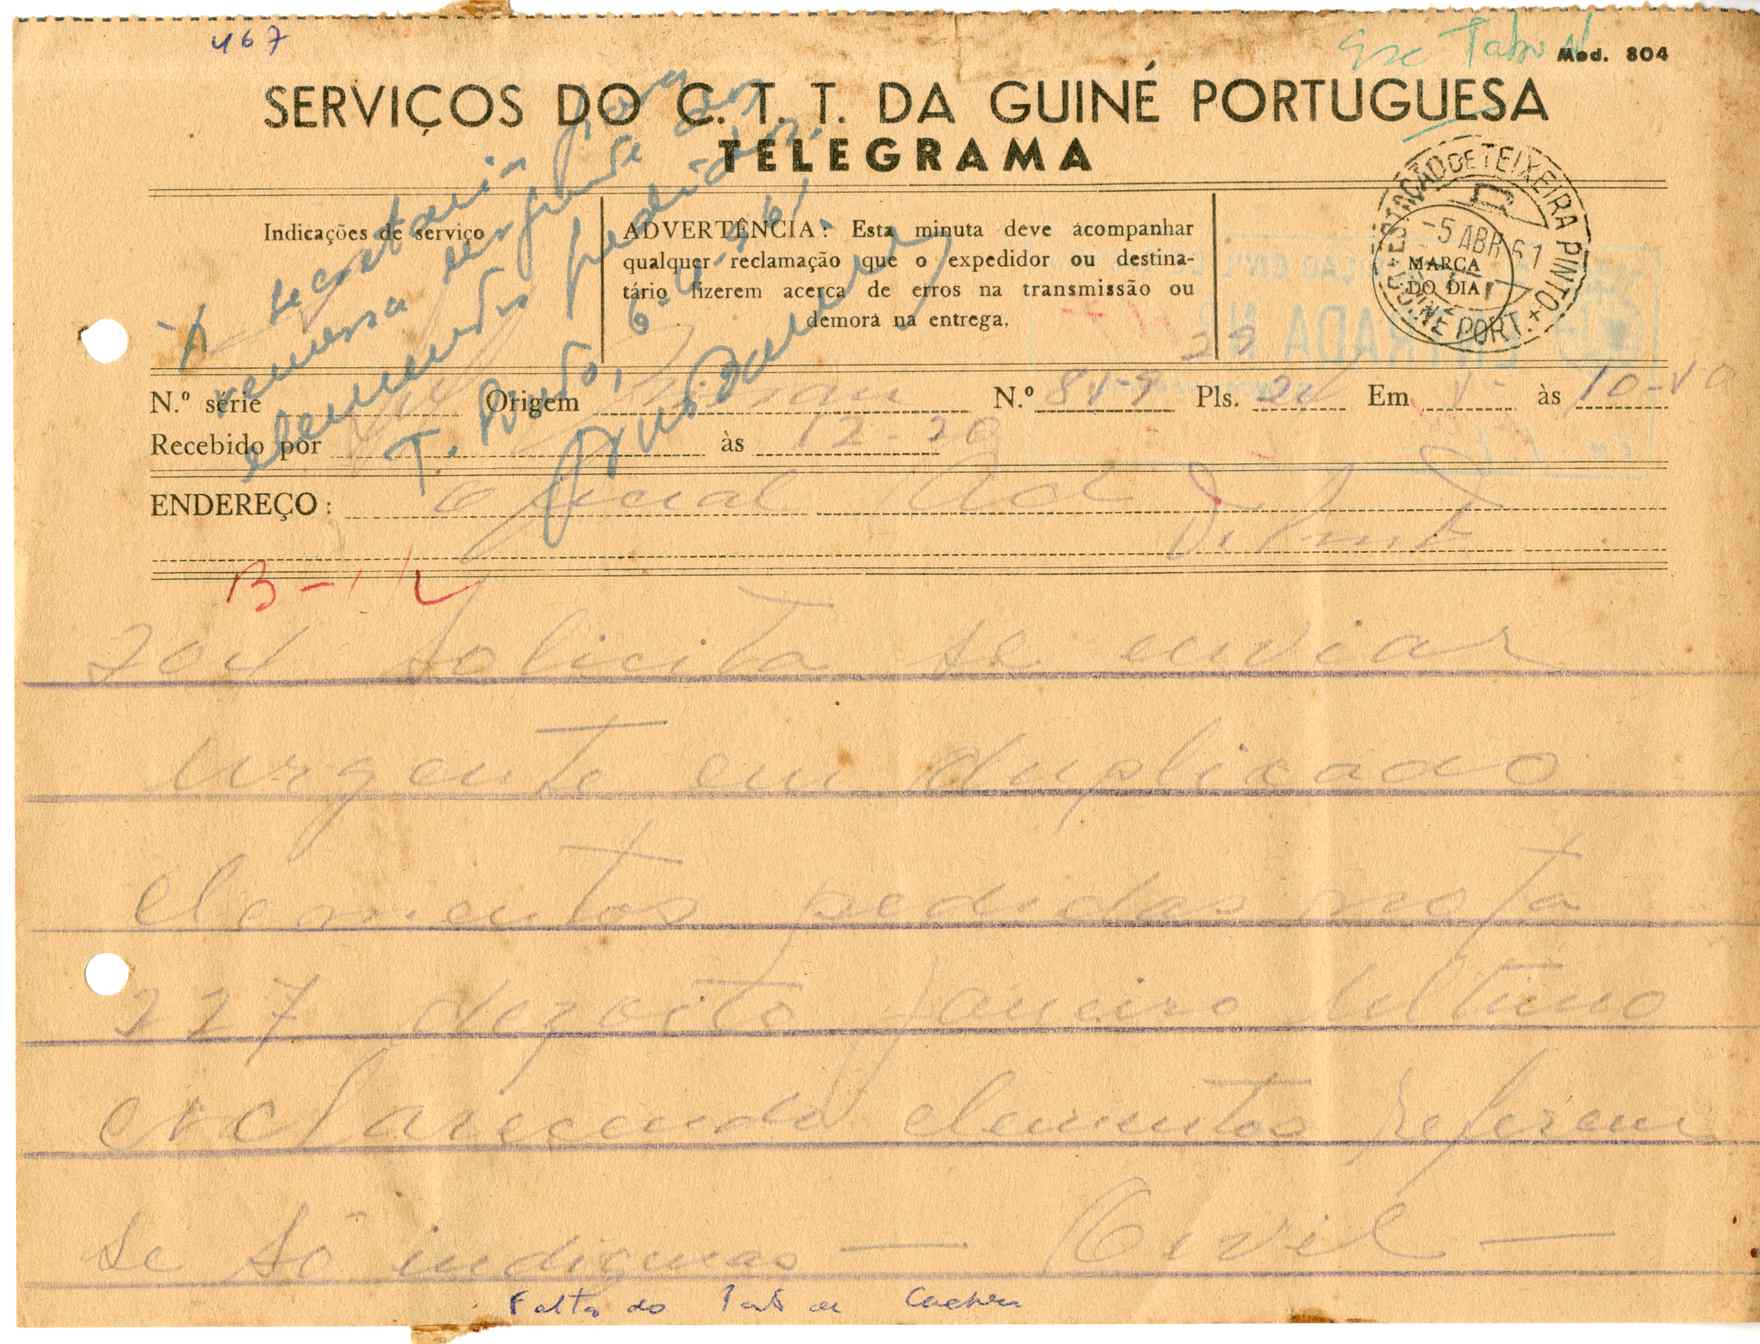 467
Mod. 804
SERVIÇOS DO C. T. T. DA GUINÉ PORTUGUESA
TELEGRAMA
À secretaria para
remessa urgente dos
elementos pedidos.
T. Pinto, 6-4-961
Indicações de serviço
ADVERTÊNCIA: Esta minuta deve acompanhar
qualquer reclamação que o expedidor ou destina-
tário fizerem acerca de erros na transmissão ou
demora na entrega.
ESTAÇÃO DE TEIXEIRA PINTO
-5 ABR 61
MARCA
DO DIA
GUINÉ PORT.
N.º série Origem Bissau N.º Pls. Em às 10-10
Recebido por às 12-20
ENDEREÇO: Oficial Ad
B-1
204 Solicita se enviar
urgente em duplicado
elementos pedidos nota
227 dezoito Janeiro último
esclarecendo elementos referem
se só indígenas — Civil —
Falta do Posto de Cacheu